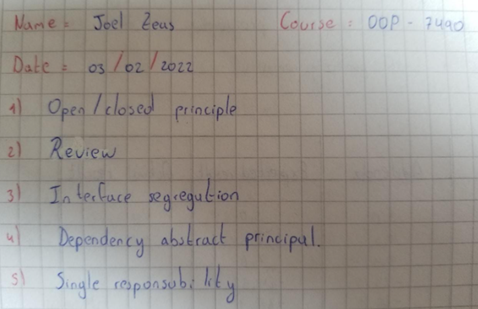 Name = Joel Zeus Course : OOP - 7490
Date = 03/02/2022
1) Open/closed principle
2) Review
3) Interface segregation
4) Dependency abstract principal.
5) Single responsubility